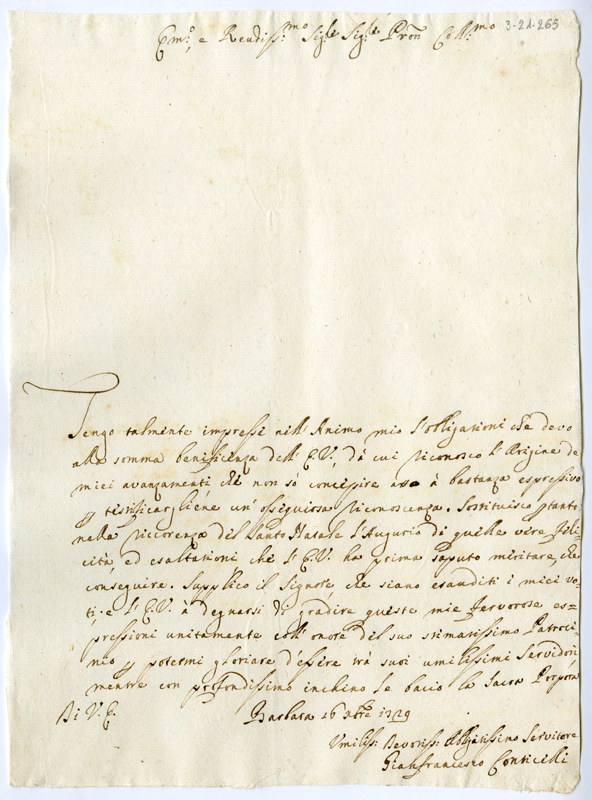 Em.o, e Reudiss.mo Sig.re Sig.re Pron Coll.mo 3-21-265
Tengo talmente impressi nell'Animo mio l'obligationi che devo
alla somma beneficenza dell'E.V., da cui riconosco l'Origine de
miei avanzamenti, che non sò concepire à bastanza espressivo
testificargliene un'ossequiosa riconoscenza. Sostituisco ptanto
nella riccorenza del Santo Natale l'Augurio di quelle vere feli=
cità, ed esaltationi che l'E.V. ha prima saputo meritare, che
conseguire. Supplico il Signore, che siano esauditi i miei vo=
ti, e l'E.V. à degnarsi di gradire queste mie fervorose es=
pressioni unitamente coll'onore del suo stimatissimo Patroci=
nio potermi gloriare d'essere trà suoi umilissimi Servidori,
mentre con profondissimo inchino le bacio la Sacra Porpora
Di V.E. Barbara 16 Xbre 1729
Umiliss: Devotiss: Obligatissimo Servitore
Gianfrancesco Conticelli